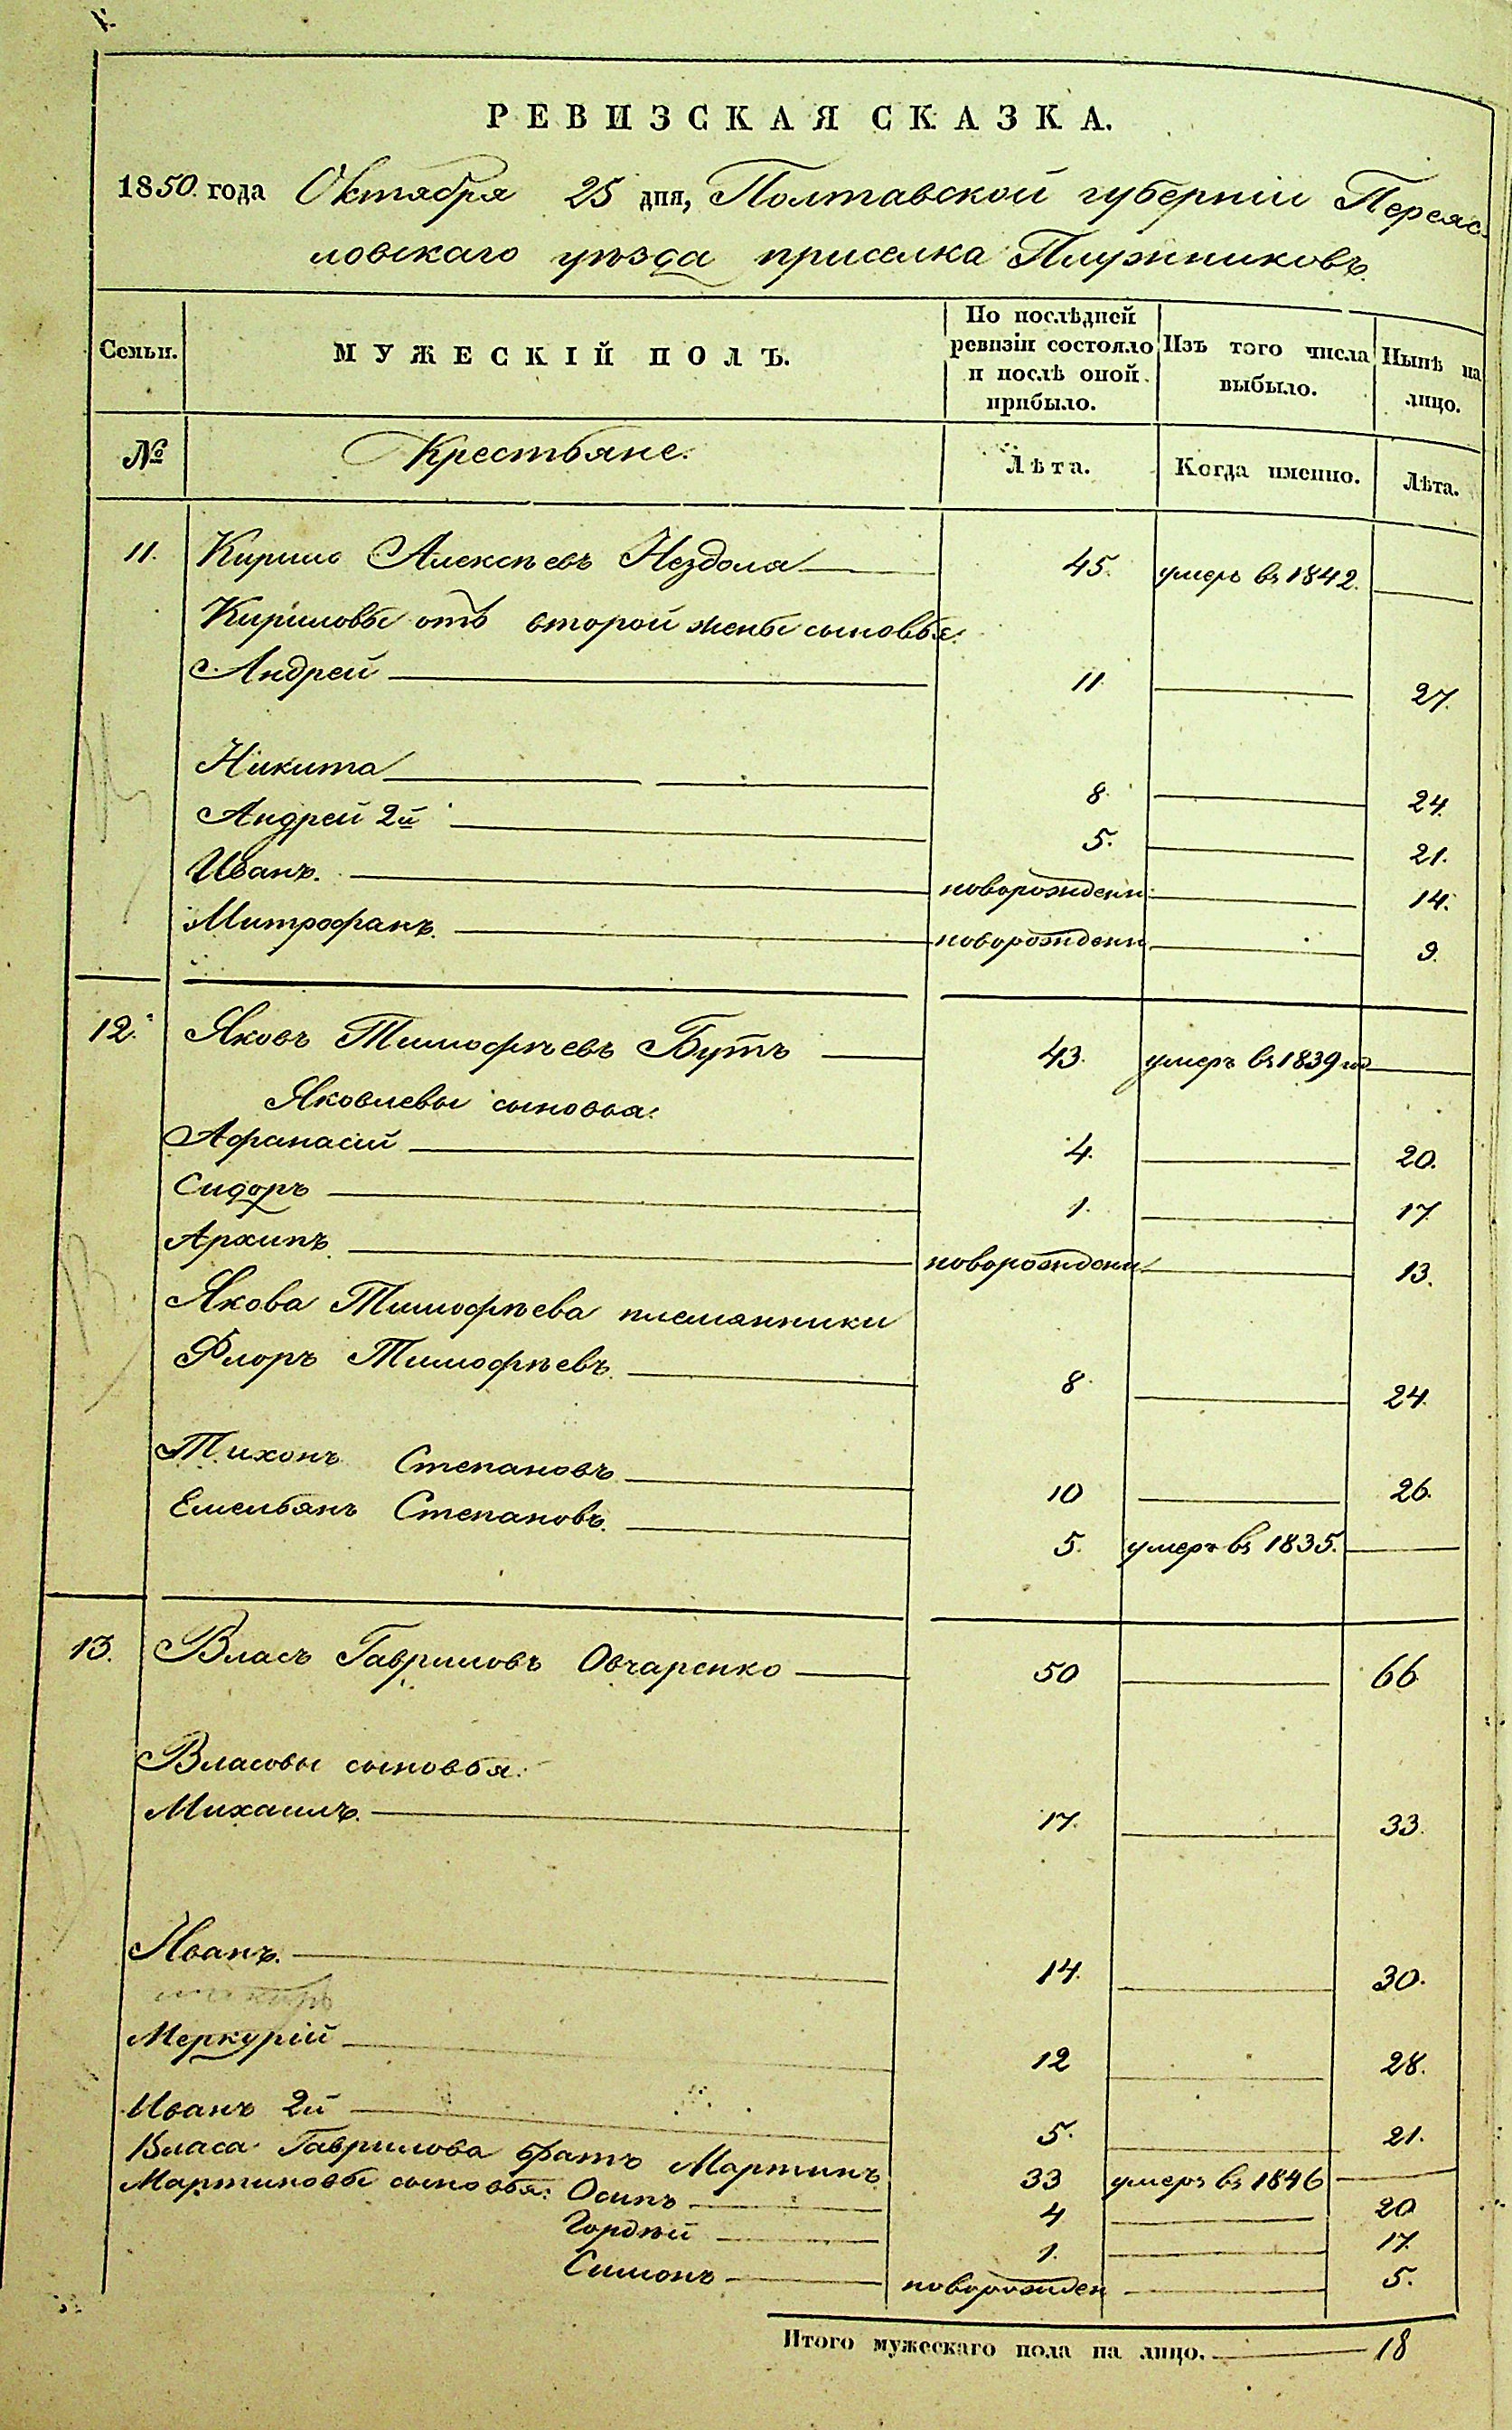 РЕВИЗСКАЯ СКАЗКА.
1850 года Октября 25 дня, Полтавской губерніи Переяс-
ловскаго уѣзда приселка Плужниковъ.
Семьи. МУЖЕСКІЙ ПОЛЪ. По послѣдней ревизіи состояло и послѣ оной прибыло. Изъ того числа выбыло. Нынѣ на лицо.
№ Крестьяне. Лѣта. Когда именно. Лѣта.
11. Кирило Алексѣевъ Нездола 45. умеръ въ 1842.
Кириловы отъ второй жены сыновья:
Андрей 11 27.
Никита 8. 24.
Андрей 2й 5. 21.
Иванъ. новорожден 14.
Митрофанъ. новорожден 9.
12. Яковъ Тимофѣевъ Бутъ 43. умеръ въ 1839 год
Яковлевы сыновья:
Афанасій 4. 20.
Сидоръ 1. 17
Архипъ. новорожден 13.
Якова Тимофѣева племянники
Флоръ Тимофѣевъ. 8. 24.
Тихонъ Степановъ 10 26.
Емельянъ Степановъ. 5. умеръ въ 1835.
13. Власъ Гавриловъ Овчаренко 50 66
Власовы сыновья:
Михаилъ. 17. 33.
Иванъ. 14. 30.
Меркурій 12 28.
Иванъ 2й 5. 21.
Власа Гаврилова братъ Мартинъ 33 умеръ въ 1846
Мартиновы сыновья: Осипъ 4 20
Гордѣй 1. 17.
Симонъ новорожден 5.
Итого мужескаго пола на лицо. 18